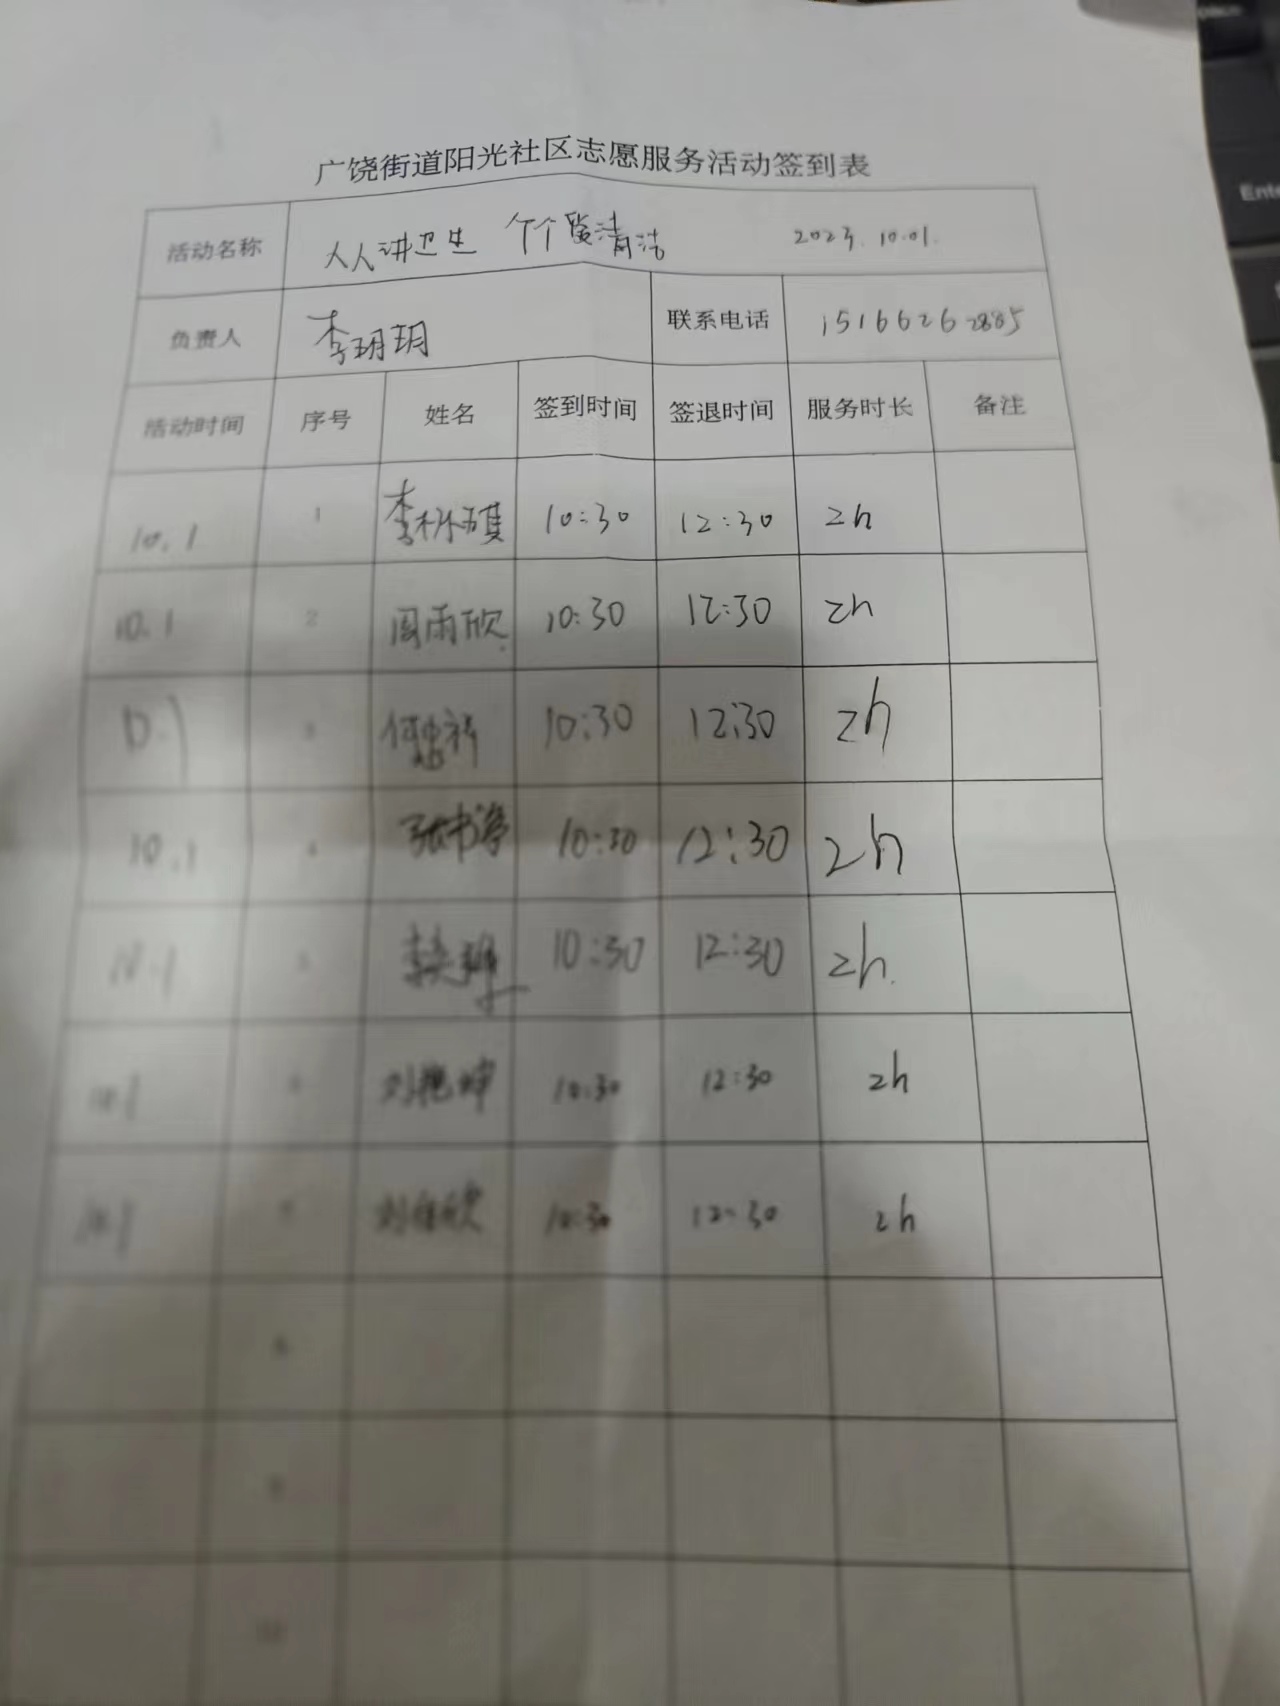 广饶街道阳光社区志愿服务活动签到表
活动名称 人人讲卫生 个个 清洁 2023.10.01.
负责人 李玥玥 联系电话 15166262885
活动时间 序号 姓名 签到时间 签退时间 服务时长 备注
10.1 1 10:30 12:30 2h
10.1 2 周雨欣 10:30 12:30 2h
10.1 3 10:30 12:30 2h
10.1 4 10:30 12:30 2h
10.1 5 10:30 12:30 2h.
10.1 10:30 12:30 2h
10.1 10:30 12:30 2h